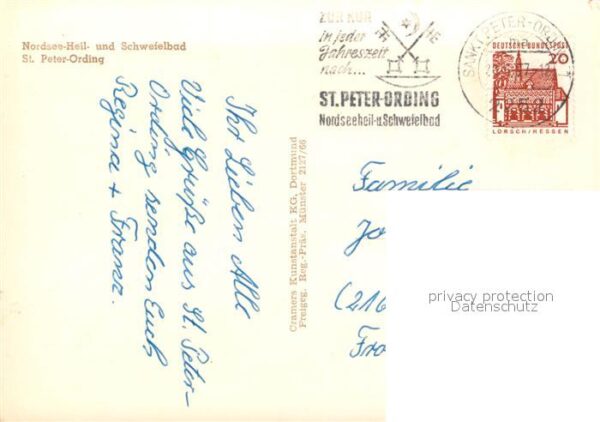 Nordsee-Heil- und Schwefelbad
St. Peter-Ording
Ihr Lieben Alle
Viele Grüße aus St. Peter-
Ording senden Euch
Regina + Franz.
Cramers Kunstanstalt KG, Dortmund
Freigeg. Reg.-Präs. Münster 2127/66
ZUR KUR
in jeder
Jahreszeit
nach...
ST. PETER-ORDING
Nordseeheil-u. Schwefelbad
SANKT PETER-ORDING
DEUTSCHE BUNDESPOST
20
LORSCH/HESSEN
Familie
Jo
(216
Fro
privacy protection
Datenschutz